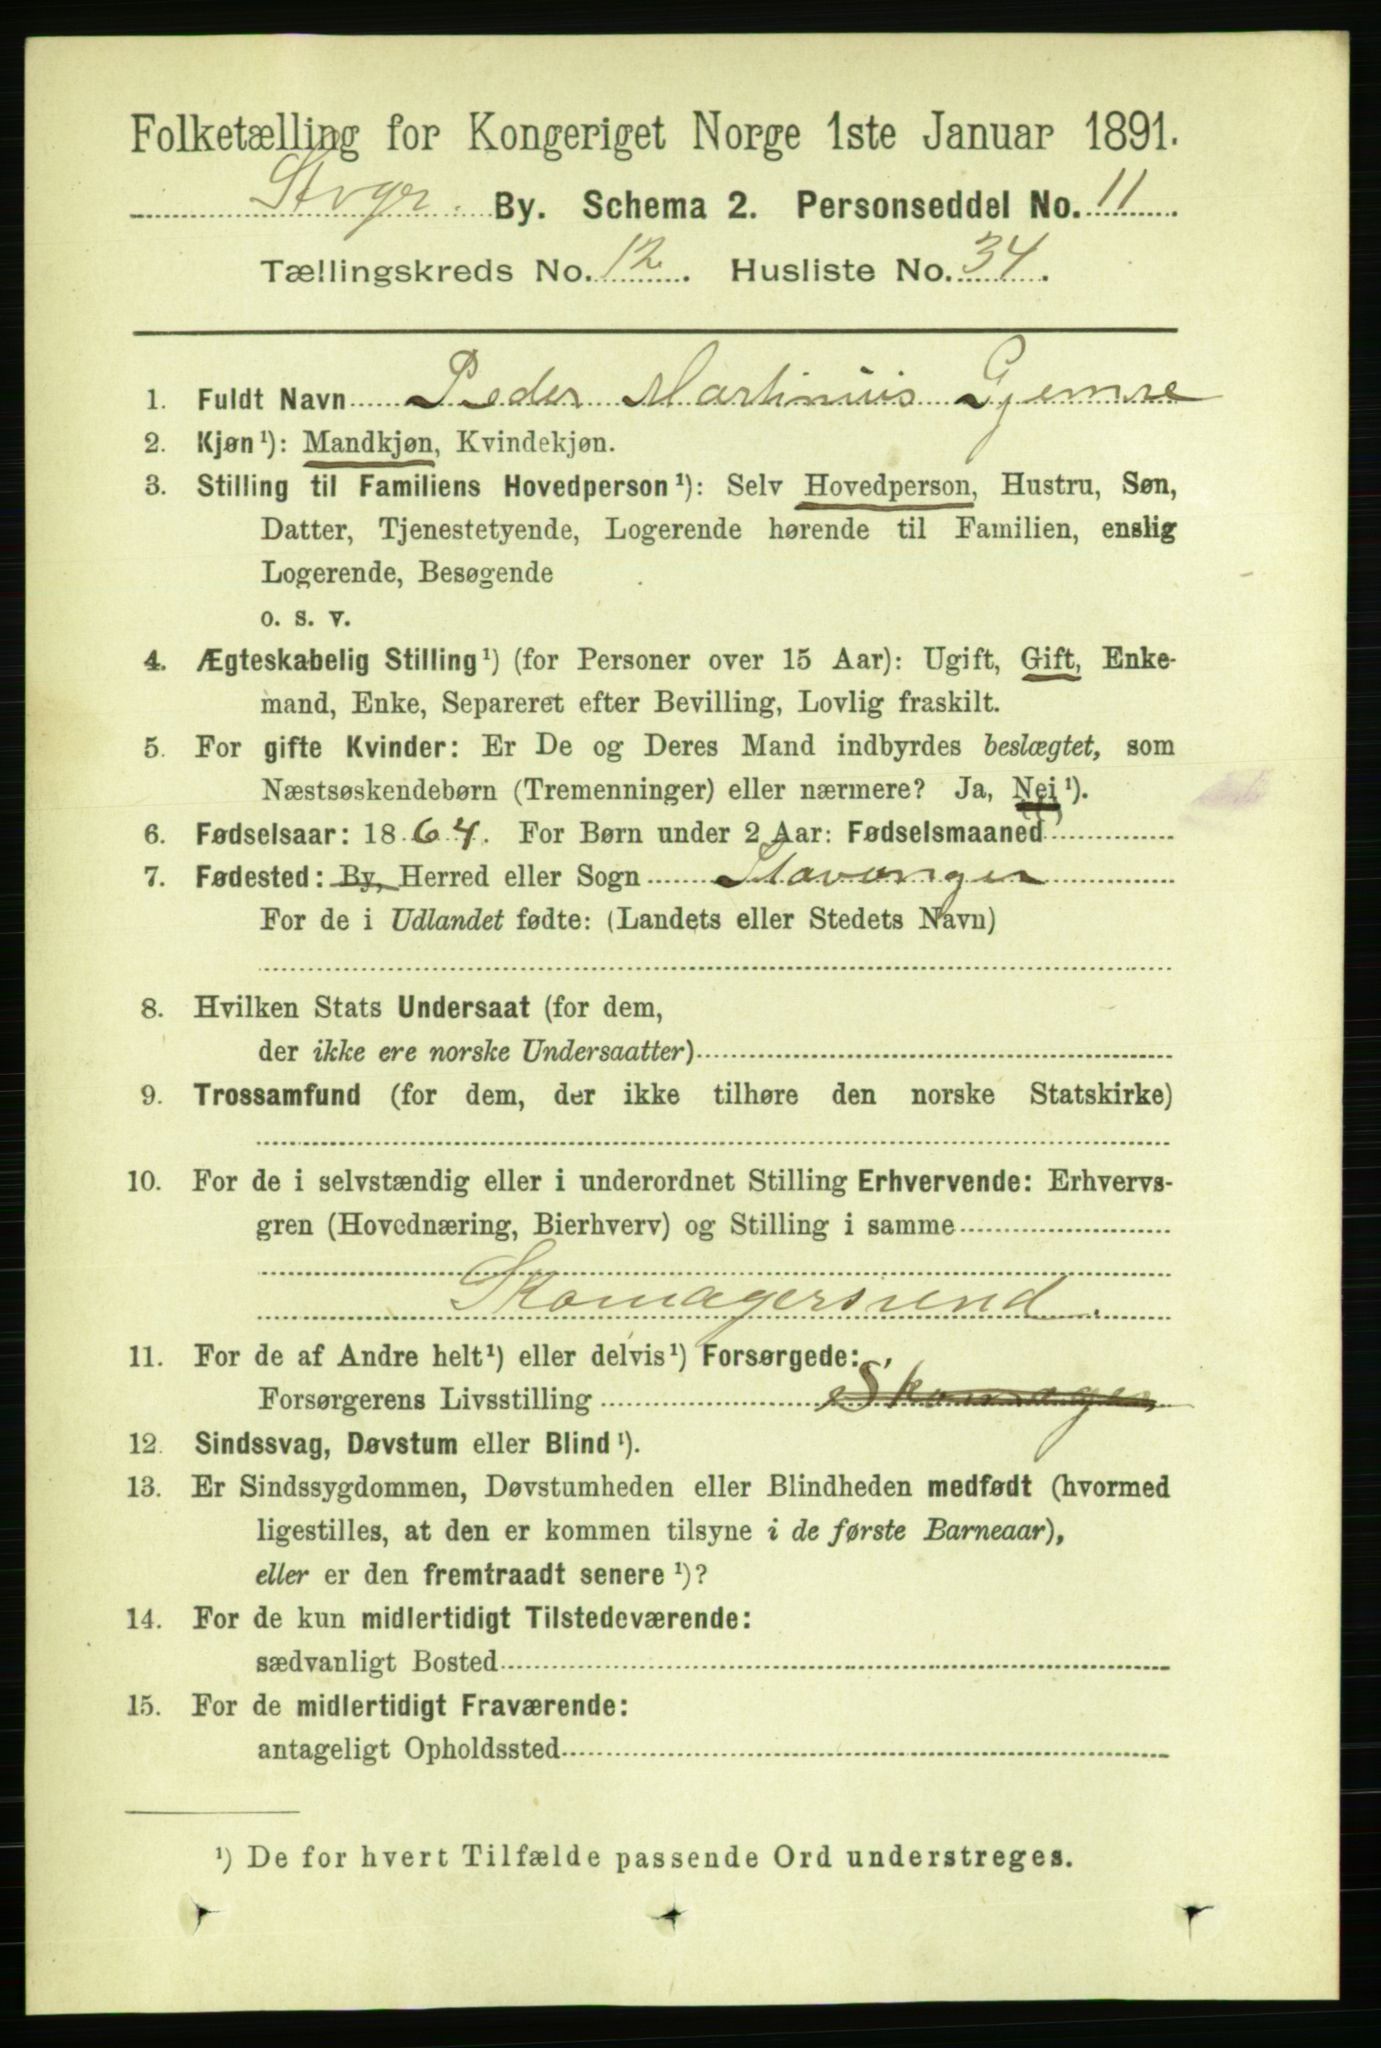 Folketælling for Kongeriget Norge 1ste Januar 1891.
Stvgr. By. Schema 2. Personseddel No. 11
Tællingskreds No. 12. Husliste No. 34.
1. Fuldt Navn Peder Martinius Gjemre
2. Kjøn ¹): Mandkjøn, Kvindekjøn.
3. Stilling til Familiens Hovedperson ¹): Selv Hovedperson, Hustru, Søn,
Datter, Tjenestetyende, Logerende hørende til Familien, enslig
Logerende, Besøgende
o. s. v.
4. Ægteskabelig Stilling ¹) (for Personer over 15 Aar): Ugift, Gift, Enke-
mand, Enke, Separeret efter Bevilling, Lovlig fraskilt.
5. For gifte Kvinder: Er De og Deres Mand indbyrdes beslægtet, som
Næstsøskendebørn (Tremenninger) eller nærmere? Ja, Nei ¹).
6. Fødselsaar: 1864. For Børn under 2 Aar: Fødselsmaaned
7. Fødested: By, Herred eller Sogn Stavanger
For de i Udlandet fødte: (Landets eller Stedets Navn)
8. Hvilken Stats Undersaat (for dem,
der ikke ere norske Undersaatter)
9. Trossamfund (for dem, der ikke tilhøre den norske Statskirke)
10. For de i selvstændig eller i underordnet Stilling Erhvervende: Erhvervs-
gren (Hovednæring, Bierhverv) og Stilling i samme
Skomagersvend.
11. For de af Andre helt ¹) eller delvis ¹) Forsørgede:
Forsørgerens Livsstilling Skomager
12. Sindssvag, Døvstum eller Blind ¹).
13. Er Sindssygdommen, Døvstumheden eller Blindheden medfødt (hvormed
ligestilles, at den er kommen tilsyne i de første Barneaar),
eller er den fremtraadt senere ¹)?
14. For de kun midlertidigt Tilstedeværende:
sædvanligt Bosted
15. For de midlertidigt Fraværende:
antageligt Opholdssted
¹) De for hvert Tilfælde passende Ord understreges.